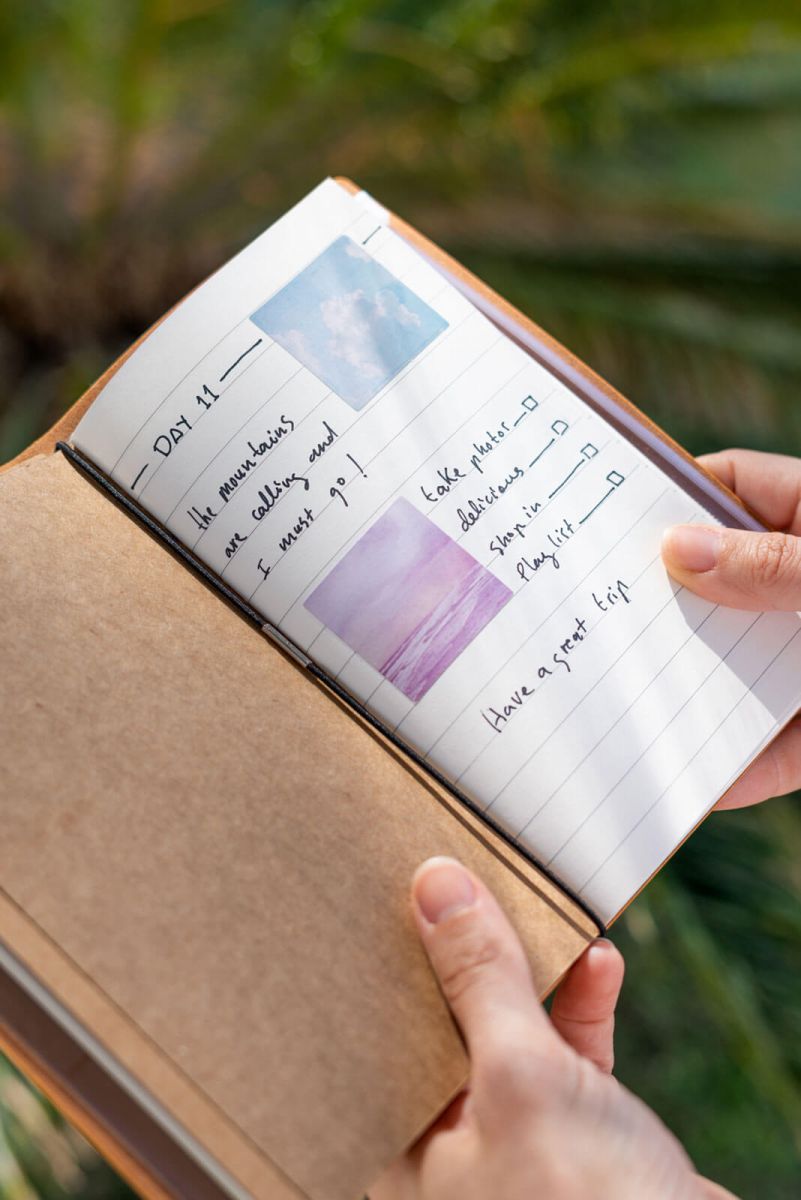 — DAY 11 —
the mountains
are calling and
I must go!
take photos — □
delicious — □
shop in — □
Play list — □
Have a great trip